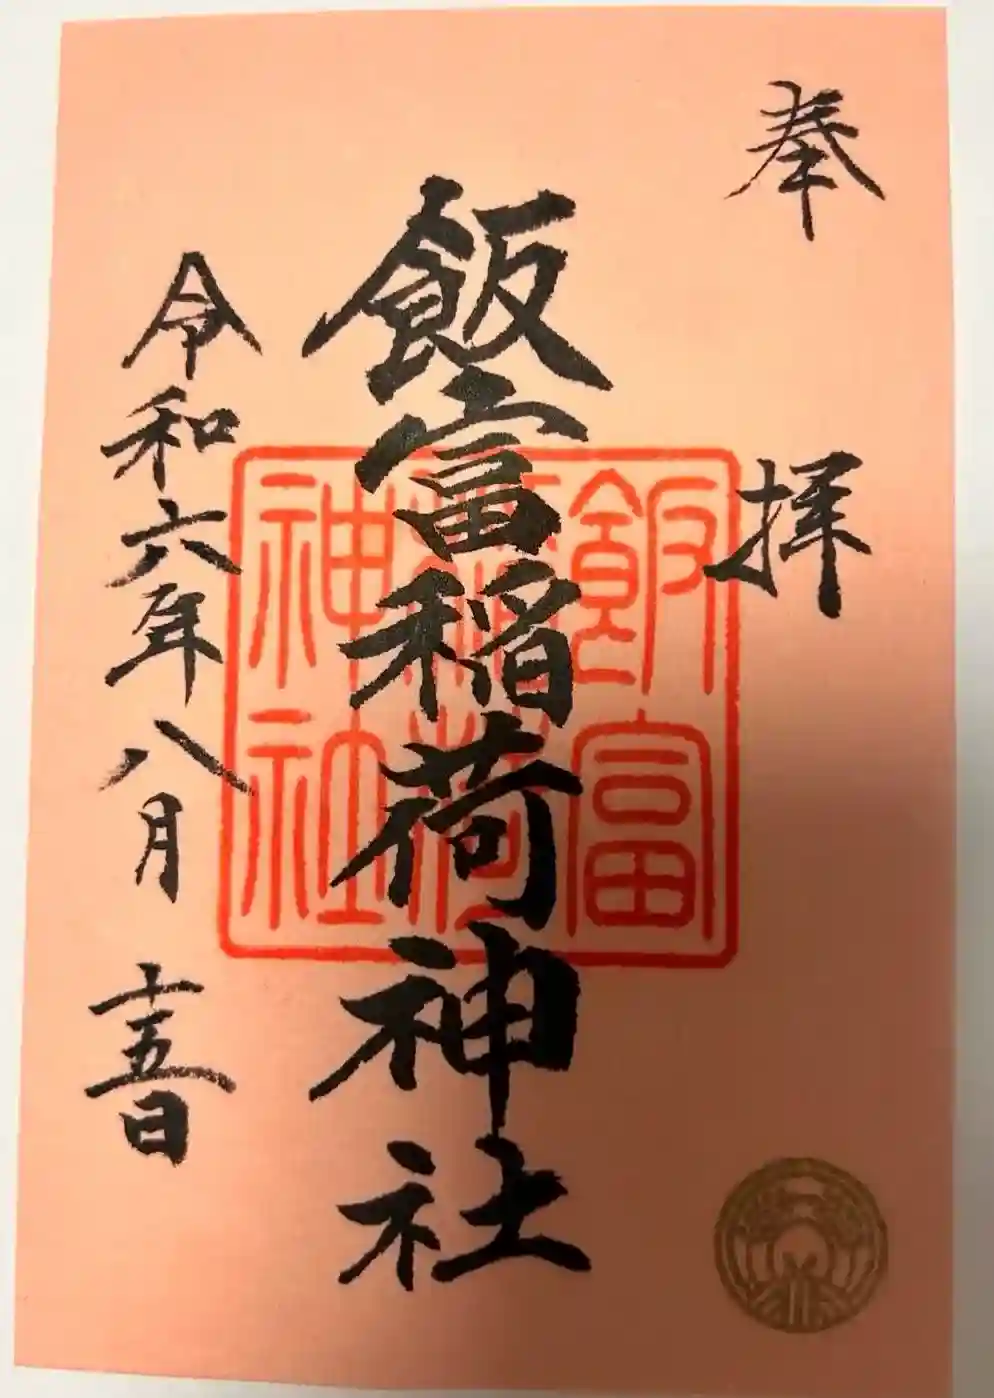 奉拝
飯富稲荷神社
令和六年八月十五日
飯富
稲荷
神社